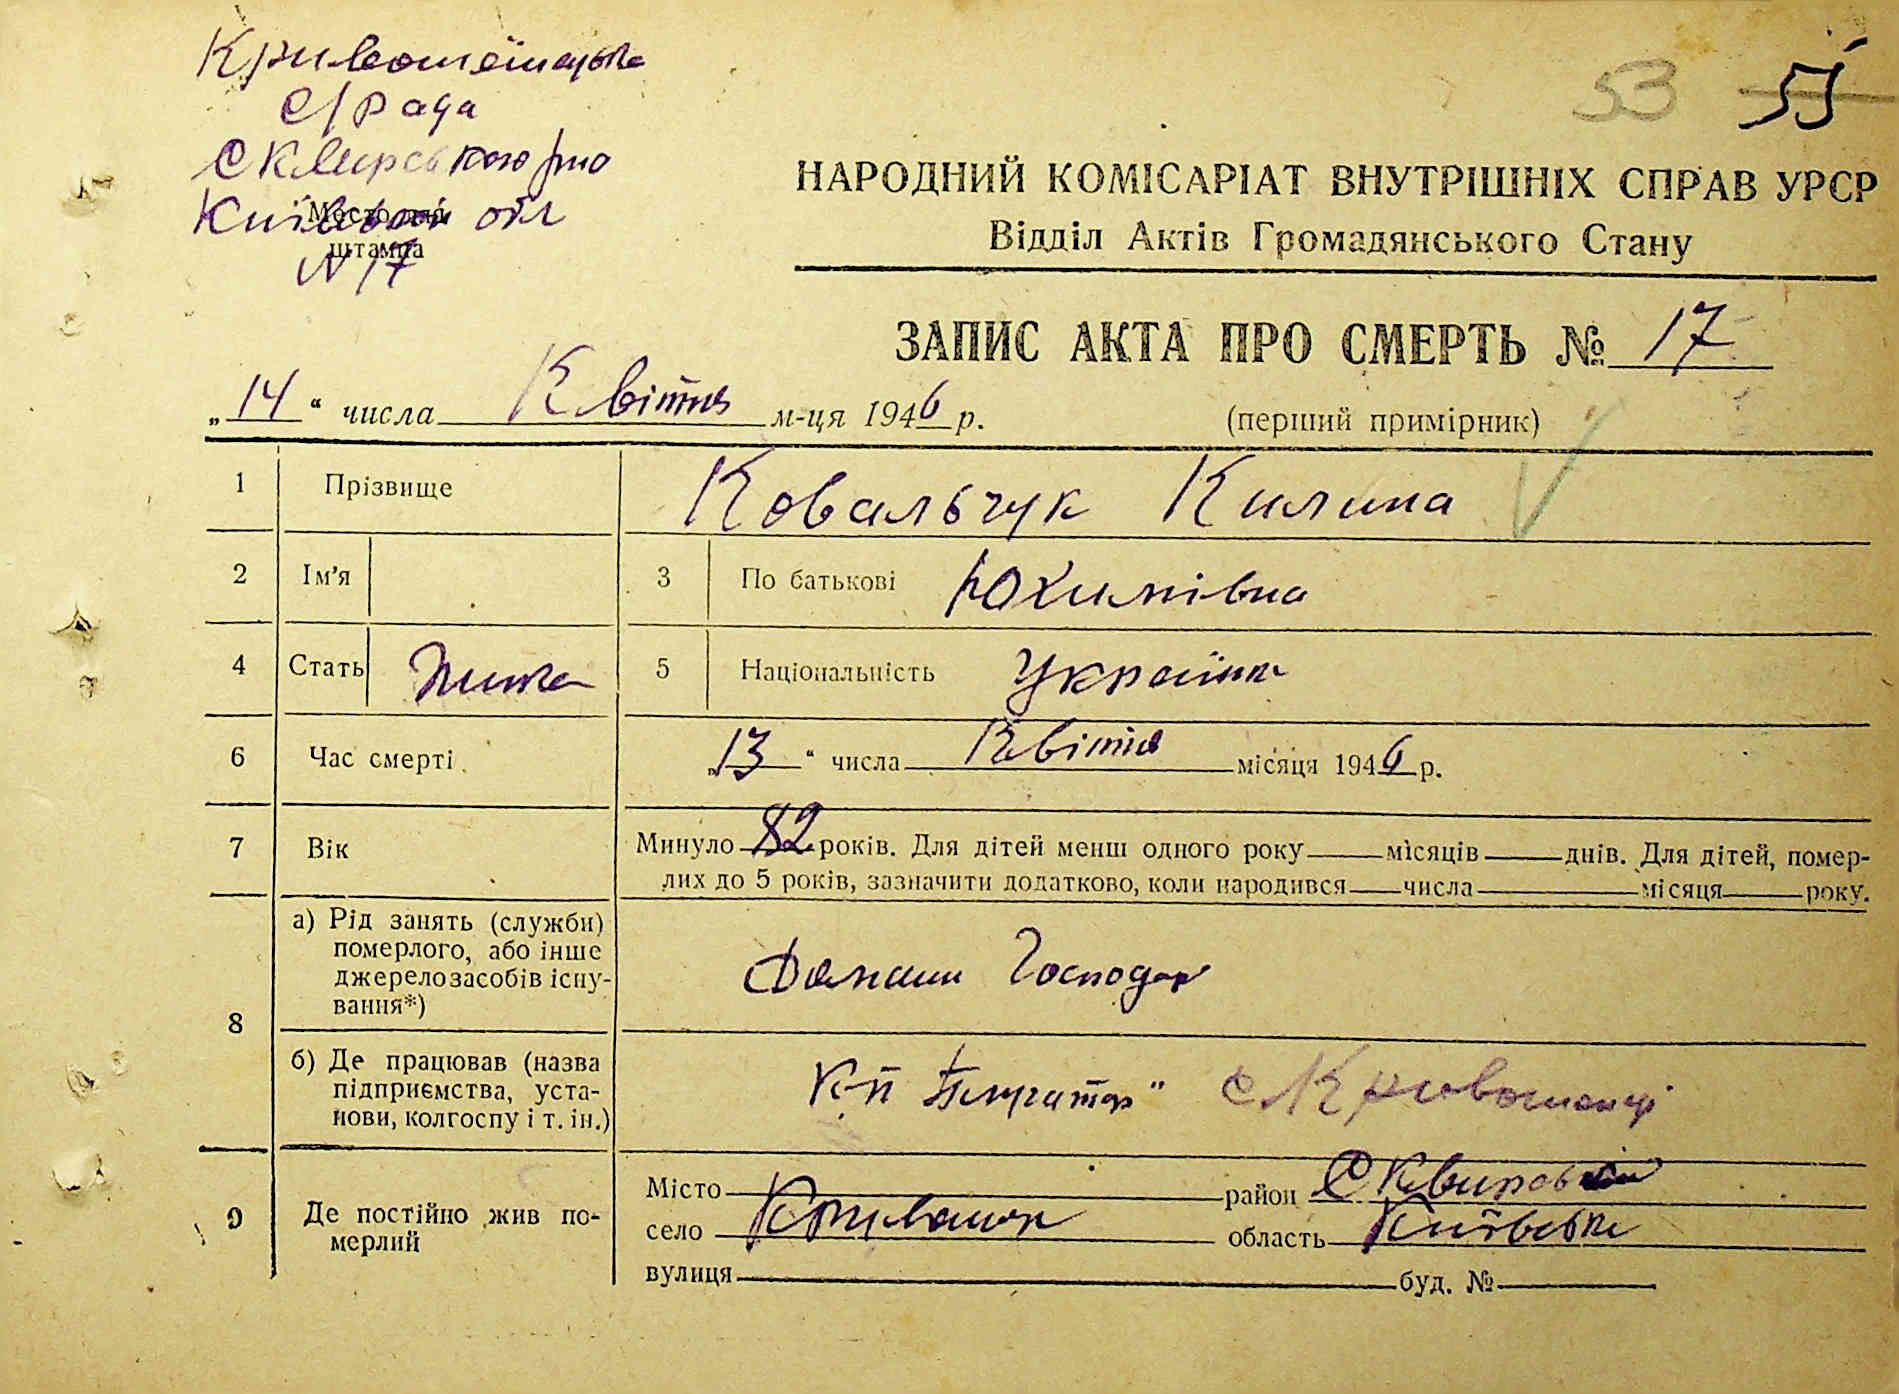 Кривошеїнська
с/рада
Сквирського р-но
Київської обл
Место для
штампа
N 17
53 55
НАРОДНИЙ КОМІСАРІАТ ВНУТРІШНІХ СПРАВ УРСР
Відділ Актів Громадянського Стану
ЗАПИС АКТА ПРО СМЕРТЬ № 17
„14“ числа Квітня м-ця 1946 р. (перший примірник)
1 Прізвище Ковальчук Килина
2 Ім'я 3 По батькові Юхимівна
4 Стать Жінка 5 Національність Українк
6 Час смерті „13“ числа Квітня місяця 1946 р.
7 Вік Минуло 82 років. Для дітей менш одного року місяців днів. Для дітей, помер-
лих до 5 років, зазначити додатково, коли народився числа місяця року.
8 а) Рід занять (служби)
померлого, або інше
джерело засобів існу-
вання*)
Домаш Господар
б) Де працював (назва
підприємства, уста-
нови, колгоспу і т. ін.)
к-п с Кривошеїнці
9 Де постійно жив по-
мерлий
Місто район Сквирський
село область Київська
вулиця буд. №